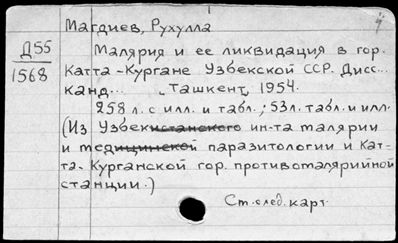 Магдиев, Рухулла
Д55
1568
Малярия и ее ликвидация в гор.
Катта-Кургане Узбекской ССР. Дисс...
канд... Ташкент, 1954.
258 л. с илл. и табл.; 53 л. табл. и илл.
(Из Узбекистанского ин-та малярии
и медицинской паразитологии и Кат-
та-Курганской гор. противомалярийной
станции.)
См. след. карт.